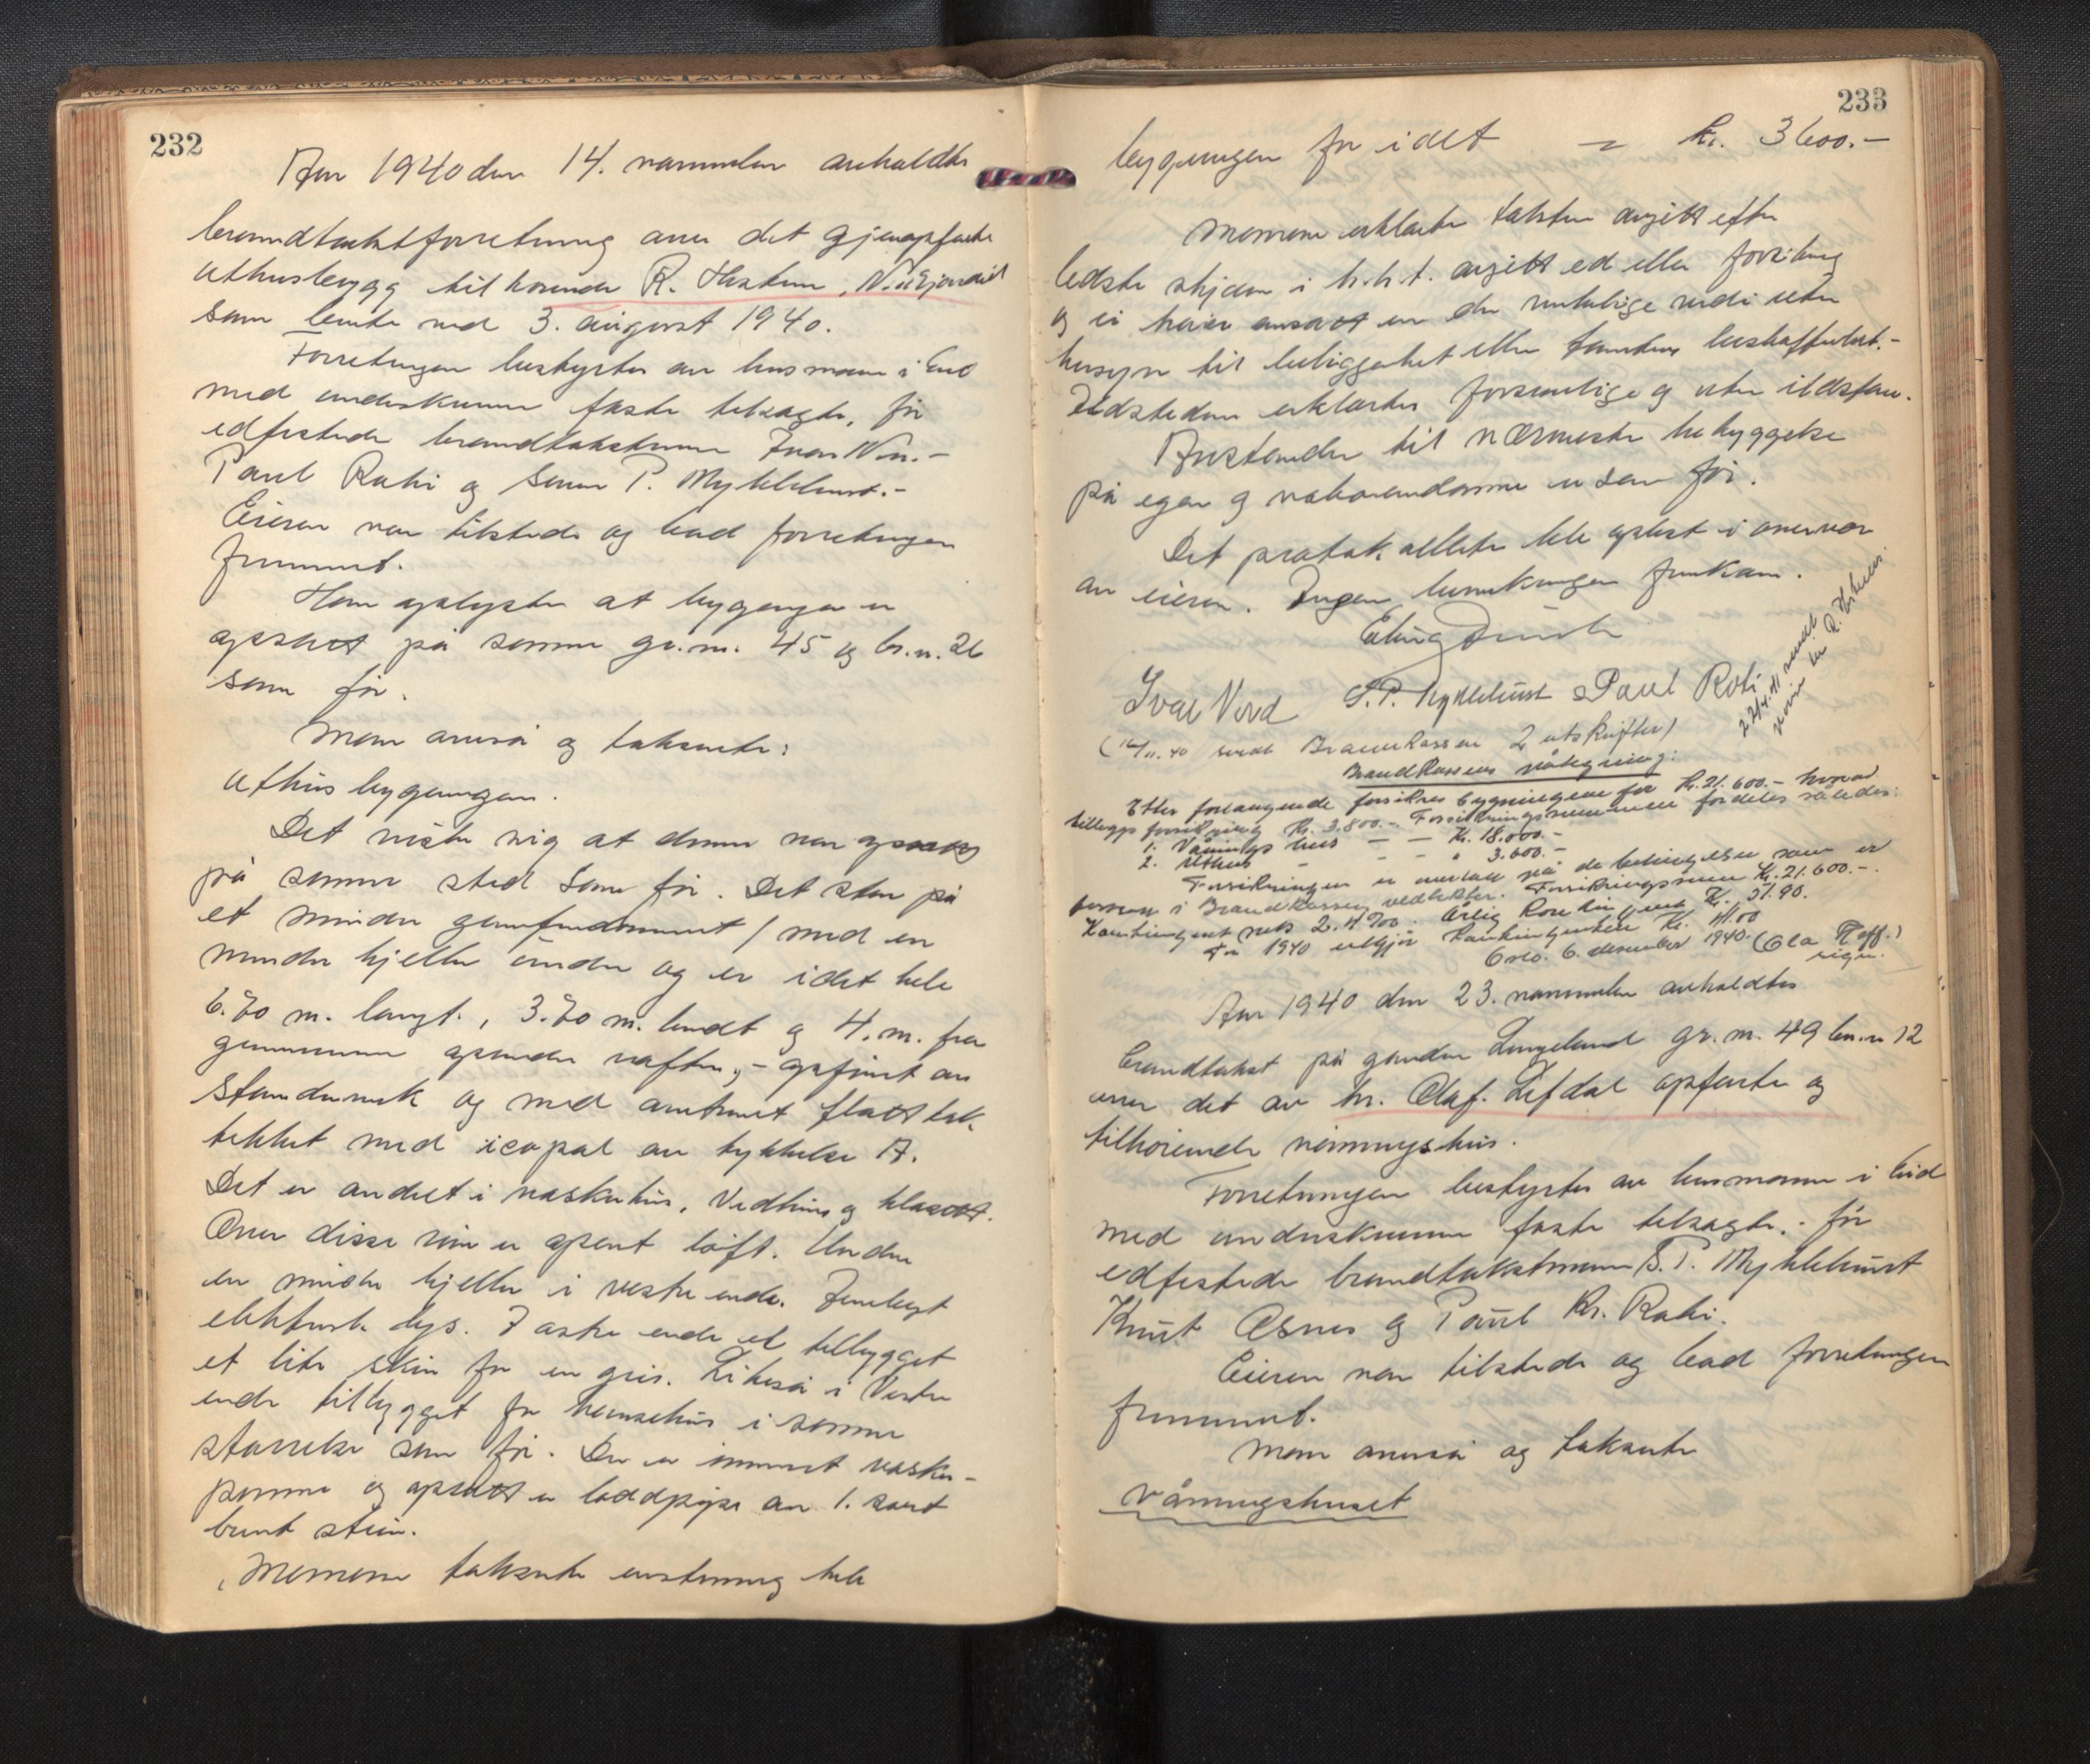 232
Aar 1940 den 14. november avholdtes
branndtakstforretning over det gjenopførte
uthusbygg tilhørende R. Hestenes, N.
som brente ned 3. august 1940.
Forretningen bestyrtes av lensmann i Eid
med underskrevne faste tilsagte, før
edfestede branndtakstmenn Ivar Nor.-
Paul Roti og Simon P. Myklebust.-
Eieren var tilstede og bad forretningen
fremmet.
Han oplyste at bygningen er
opsatt på samme gr.nr. 45 og br.n. 26
som før.
Man anså og takserte:
Uthusbygningen.
Det viste sig at denne var opsatt
på samme sted som før. Det står på
et mindre grunnfundament / med en
mindre kjeller under og er i det hele
6.70 m. langt, 3.70 m. bredt og 4. m. fra
grunnmuren opunder raften, - opført av
standerverk og med antrukket flatt tak
tekket med icopal av tykkelse A.
Det er andelt i vaskehus, vedhus og klosett.
Over disse rum er åpent loft. Under
en mindre kjeller i vestre ende. Innlagt
elektrisk lys. I østre ende er tilbygget
et lite skur for en gris. Likeså i vestre
ende tilbygget for hønsehus i samme
størrelse som før. Der er innmuret vaske-
panne og opsatt en loddpipe av 1. sort
brent stein.
Mennene takserte enstemmig hele
233
bygningen for i det = kr. 3600.-
Mennene erklærte taksten avgitt efter
bedste skjønn i h.h.t. avgitt ed eller forsikring
og vi haver ansatt en den virkelige verdi uten
hensyn til beliggenhet eller tomtens beskaffenhet.-
Ildstedene erklærtes forsvarlige og uten ildsfare.
Avstanden til nærmeste bebyggelse
på egen og naboeiendomme er som før.
Det protokollerte ble oplest i overvær
av eieren. Ingen bemerkninger fremkom.
Ivar Nord S. P. Myklebust Paul Roti
(16/11.40 sendt Brannkassen 2 utskrifter)
22/4.41 sendt
Brandkassens påtegning:
Etter forlangende forsikres bygningene for Kr. 21.600.- hvorav
tilleggsforsikring Kr. 3.800.- Forsikringssummen fordeles således:
1. Våningshus — — Kr. 18.000.-
2. Uthus - - - " 3.600.-
Forsikringen er overtatt på de betingelser som er
foreskr. i Brandkassens vedtekter. Forsikringssum Kr. 21.600.-.
Kontingent Årlig Kontingent Kr. 51.90.
For 1940 utgjør kontingenten Kr. 41.00
Oslo. 6. desember 1940. (Ola Raff.)
sign.
Aar 1940 den 23. november avholdtes
branndtakst på garden Langeland gr.nr. 49 br.nr 12
over det av hr. Olaf. Lefdal opførte og
tilhørende våningshus.
Forretningen bestyrtes av lensmann i Eid
med underskrevne faste tilsagte, - før
edfestede branndtakstmenn S. P. Myklebust
Knut Osnes og Paul Kr. Roti.
Eieren var tilstede og bad forretningen
fremmet.
Man anså og takserte
Våningshuset